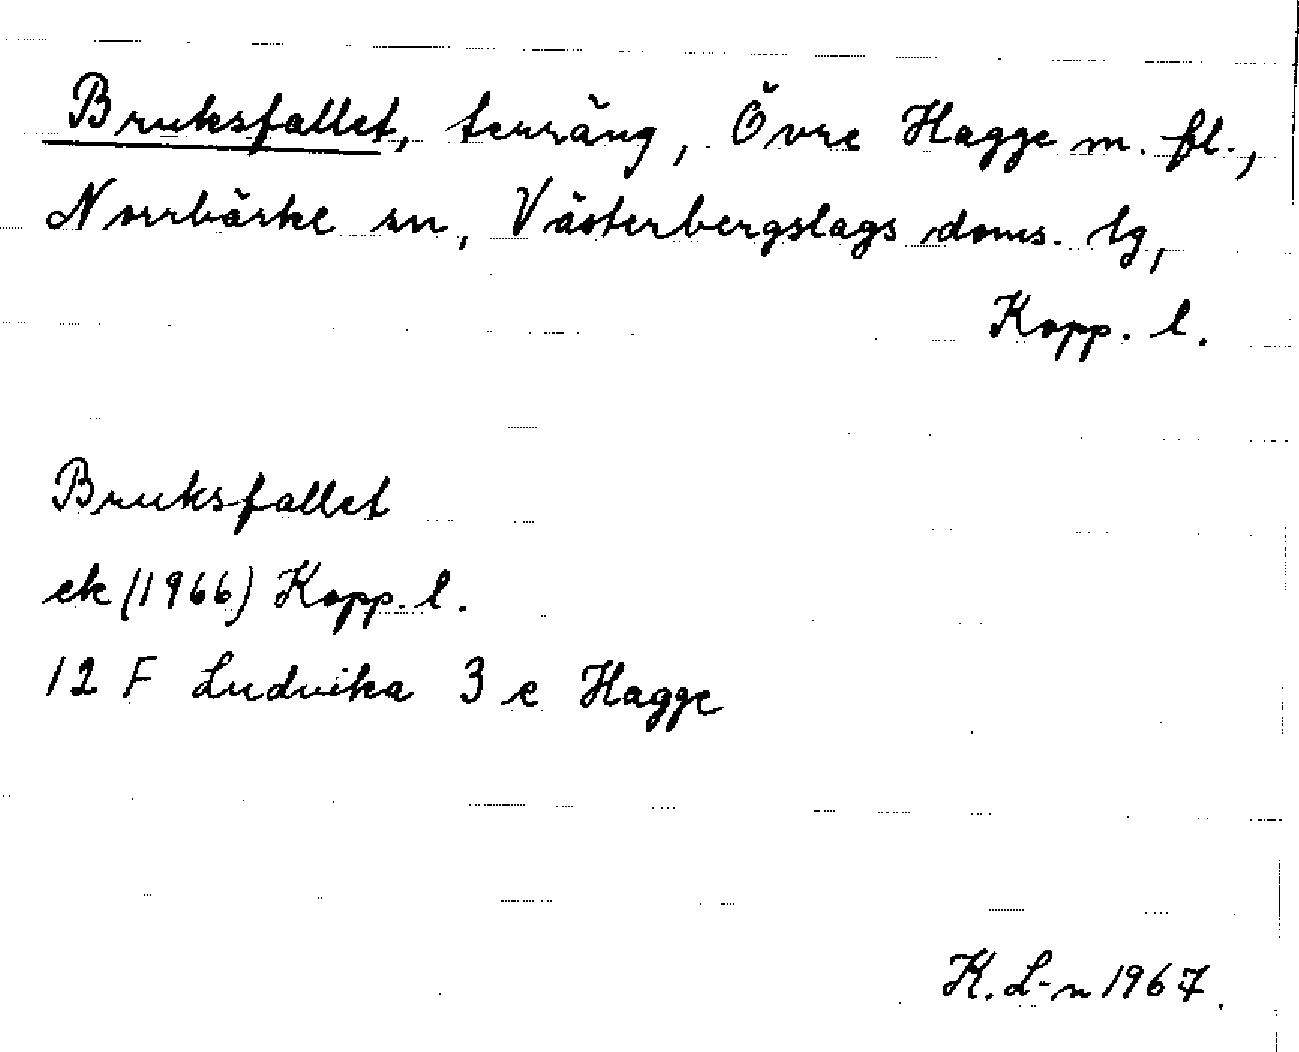 Bruksfallet, terräng, Övre Hagge m. fl.,
Norrbärke sn, Västerbergslags doms. lg,
Kopp. l.
Bruksfallet
ek (1966) Kopp. l.
12 F Ludvika 3 e Hagge
K. L-n 1967.